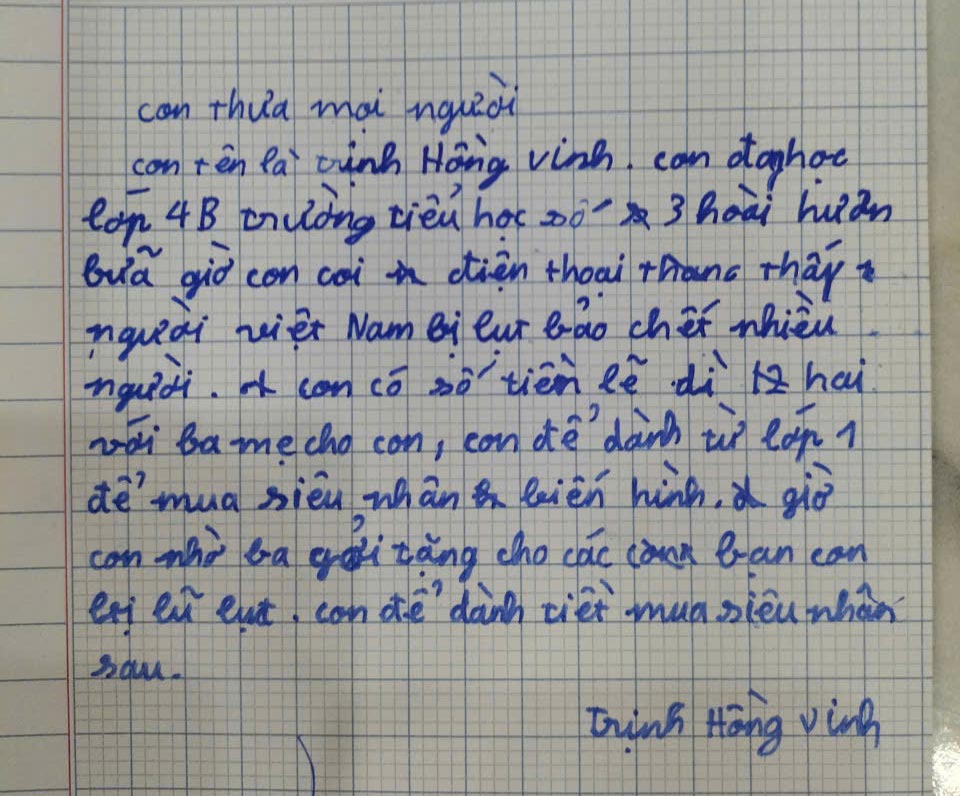 con thưa mọi người
con tên là trịnh Hồng vinh. con đang học
lớp 4B trường tiểu học số 3 hoài hươn
bữa giờ con coi điện thoại thấy
người việt Nam bị lụt bảo chết nhiều
người. con có số tiền lẽ dì 12 hai
với ba mẹ cho con, con để dành từ lớp 1
để mua siêu nhân biến hình. giờ
con nhờ ba gởi tặng cho các bạn con
bị lũ lụt. con để dành tiết mua siêu nhân
sau.
Trịnh Hồng Vinh